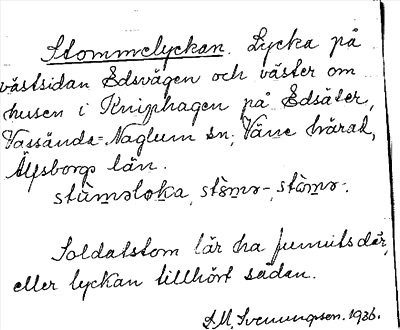 Stommelyckan. Lycka på
västsidan Edsvägen och väster om
husen i Kniphagen på Edsäter,
Vassända-Naglum sn, Väne härad,
Älfsborgs län.
Soldatstom lär ha funnits där,
eller lyckan tillhört sådan.
Svenungsson. 1926.